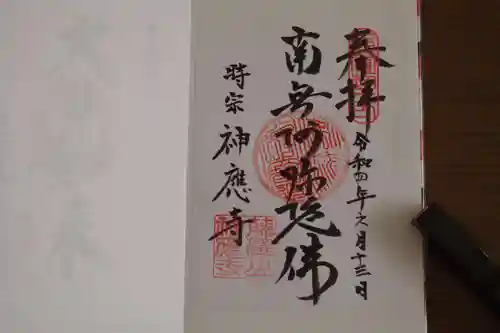 奉拝
令和四年六月十三日
南無阿弥陀佛
時宗
神應寺